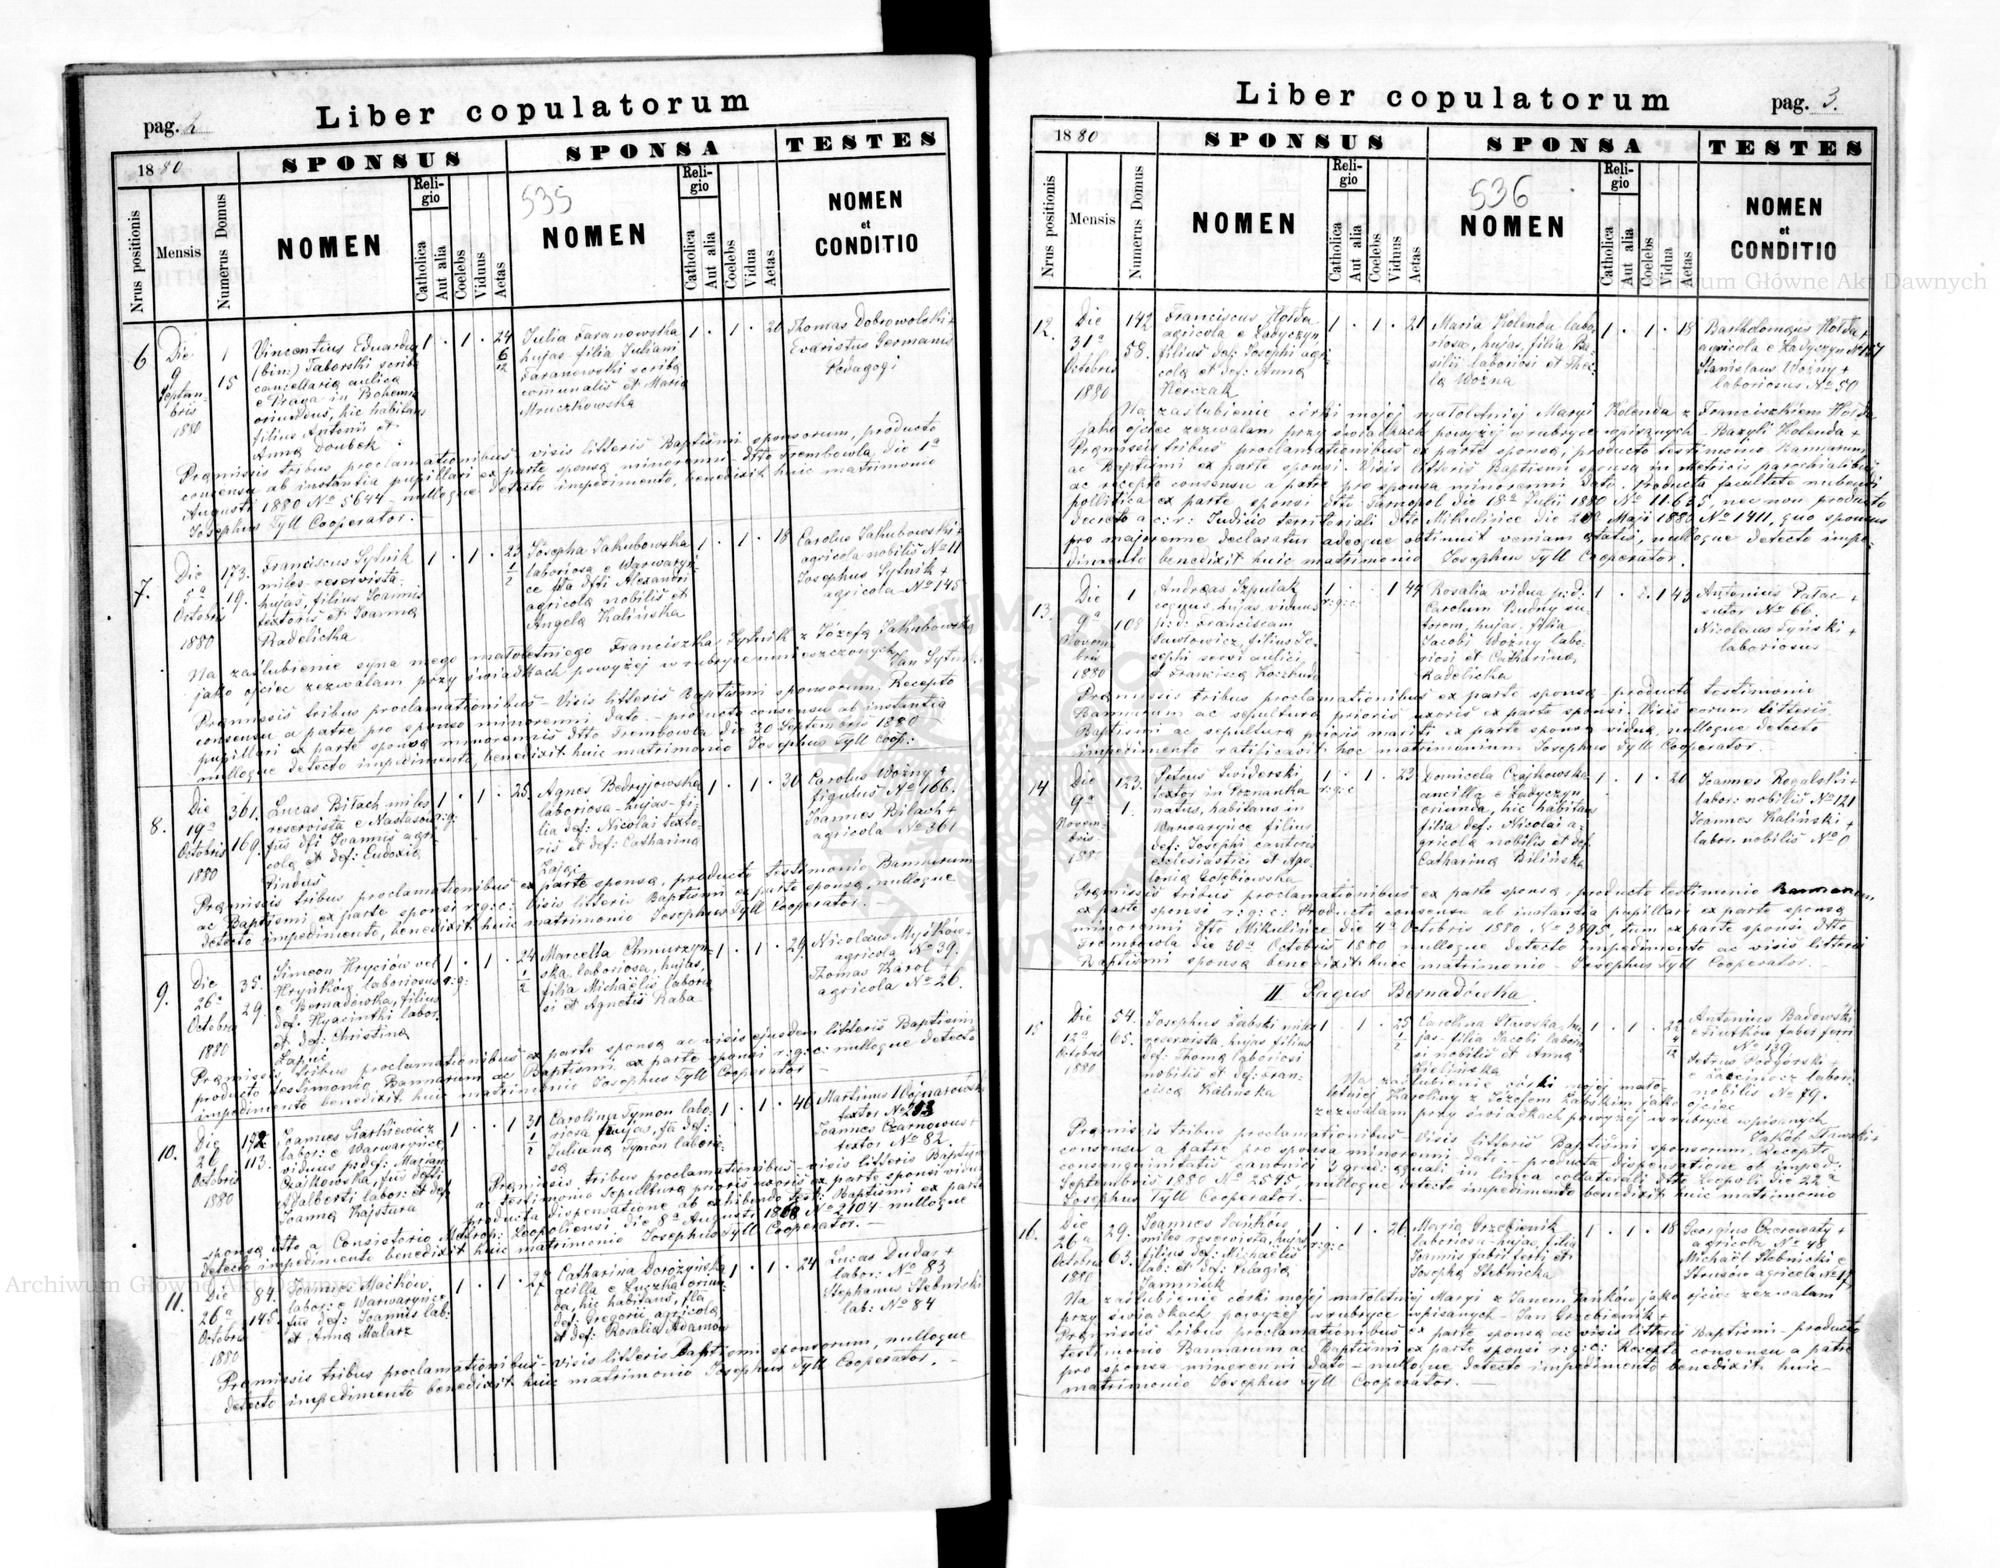 Liber copulatorum
pag. 2
1880
SPONSUS
SPONSA
TESTES
Nrus positionis
Mensis
Numerus Domus
NOMEN
Religio
Catholica
Aut alia
Coelebs
Viduus
Aetas
535
NOMEN
Religio
Catholica
Aut alia
Coelebs
Vidua
Aetas
NOMEN
et
CONDITIO
6
Die
9
Septem-
bris
1880
1
15
Vincentius Eduardus
(bin:) Taborski scriba
cancellaria aulica
e Praga in Bohemia
oriundus, hic habitans
filius Antonii et
Anna Doubek
1 . 1 . 24
6
12
Julia Taranowska
hujas filia Juliani
Taranowski scriba
comunalis et Maria
Mruczkowska
1 . 1 . 20
Thomas Dobrowolski +
Evaristus Germanus
Pedagogi
Praemissis tribus proclamationibus visis litteris Baptismi sponsorum, producto
consensu ab instantia pupillari ex parte sponsa minorenni dtto Trembowla die 1a
Augusti 1880 No 5644 - nulloque detecto impedimento, benedixit huic matrimonio
Josephus Tyll Cooperator.
7.
Die
5a
Octobris
1880
173.
19.
Franciscus Sytnik
miles reservista
hujas, filius Joannis
textoris et Joanna
Radelicka
1 . 1 . 23
1
2
Josepha Jakubowska
laboriosa e Warwaryn-
ce fila dtti Alexandri
agricola nobilis et
Angela Kalińska
1 . 1 . 18
Carolus Jakubowski +
agricola nobilis No 11
Josephus Sytnik +
agricola No 145
Na zaślubienie syna mego małoletniego Franciszka Sytnik z Józefą Jakubowską
jako ojciec zezwalam przy świadkach powyżej w rubryce umieszczonych Jan Sytnik
Praemissis tribus proclamationibus - Visis litteris Baptismi sponsorum, Recepto
consensu a patre pro sponso minorenni dato - producto consensu ab instantia
pupillari ex parte sponsa minorennis dtto Trembowla die 30 Septembris 1880
nulloque detecto impedimento, benedixit huic matrimonio Josephus Tyll Coop:
8.
Die
19a
Octobris
1880
361.
169.
Lucas Biłach miles
reservista e Nastasow
fius dfi Joannis agri-
cola et def: Eudoxia
Pindus
1 . 1 . 25
r:g:
Agnes Bedryjowska
laboriosa hujas fi-
lia def: Nicolai texto-
ris et def: Catharina
Zajac
1 . 1 . 30
Carolus Woźny +
figulus No 166.
Joannes Bilach +
agricola No 361
Praemissis tribus proclamationibus ex parte sponsa, producto testimonio Bannorum
ac Baptismi ex parte sponsi r:g:c: Visis litteris Baptismi ex parte sponsa, nulloque
detecto impedimento, benedixit huic matrimonio Josephus Tyll Cooperator.
9.
Die
26a
Octobris
1880
35.
29.
Simeon Hryciów vel
Hryńków laboriosus
e Bernadówka, filius
def. Hyacinthi labor.
et def: Christina
Łapuć
1 . 1 . 24
r:g:
1
2
Marcella Chmurzyn-
ska laboriosa, hujas,
filia Michaëlis laborio-
si et Agnetis Raba
1 . 1 . 29.
Nicolaus Myśków +
agricola No 39.
Thomas Karol +
agricola No 26.
Praemissis tribus proclamationibus ex parte sponsa ac visis ejusdem litteris Baptismi
producto testimonio Bannorum ac Baptismi ex parte sponsi r:g:c: nulloque detecto
impedimento benedixit huic matrimonio Josephus Tyll Cooperator
10.
Die
26
Octobris
1880
192
113.
Joannes Siarkiewicz
labor: e Warwaryńce
viduus p:def: Mariam
Czaikowska, fius defti
Adalberti labor: et def
Joanna Kajstura
1 . 1 31
1
2
Carolina Tymon labo-
riosa hujas, fa def:
Juliana Tymon laborio-
sa
1 . 1 . 46
Martinus Wojnarowski
textor No 293
Joannes Czarnowus +
textor No 82
Praemissis tribus proclamationibus - visis litteris Baptismi
ac testimonio Sepultura prioris uxoris ex parte sponsi vidui
producta dispensatione ab exhibendo test: Baptismi ex parte
sponsa dtto a Consistorio Metrop: Leopoliensi die 8a Augusti 1868 No 2104 nulloque
detecto impedimento benedixit huic matrimonio Josephus Tyll Cooperator.
11.
Die
26a
Octobris
1880
84.
145.
Joannes Maćków
labor: e Warwaryńce
fius def: Joannis lab:
et Anna Malarz
1 . 1 . 27
Catharina Dorożyńska
acilla e Łuczka oriun-
da, hic habitans, fila
def: Gregorii agricola
et def: Rosalia Adamów
1 . 1 . 24
Lucas Dudas +
labor: No 83
Stephanus Stebniski
lab: No 84
Praemissis tribus proclamationibus - visis litteris Baptismi sponsorum, nulloque
detecto impedimento benedixit huic matrimonio Josephus Tyll Cooperator.
Liber copulatorum
pag. 3.
1880
SPONSUS
SPONSA
TESTES
Nrus positionis
Mensis
Numerus Domus
NOMEN
Religio
Catholica
Aut alia
Coelebs
Viduus
Aetas
536
NOMEN
Religio
Catholica
Aut alia
Coelebs
Vidua
Aetas
NOMEN
et
CONDITIO
12.
Die
31a
Octobris
1880
142
58.
Franciscus Hołda
agricola e Ładyczyn
filius def: Josephi agri-
cola et def: Anna
Nerczak
1 . 1 . 21
Maria Kolenda labo-
riosa, hujas, filia Ba-
silii laboriosi et The-
cla Woźna
1 . 1 . 18
Bartholomaus Hołda +
agricola e Ładyczyn No 157
Stanislaus Woźny +
laboriosus No 50
Na zaślubienie córki mojej małoletniej Maryi Kolenda z Franciszkiem Hołda
jako ojciec zezwalam przy świadkach powyżej w rubryce wpisanych - Bazyli Kolenda +
Praemissis tribus proclamationibus ex parte sponsa, producto testimonio Bannorum
ac Baptismi ex parte sponsi. Visis litteris Baptismi sponsa in metricis parochialibus
ac recepto consensu a patre pro sponsa minorenni dato. Producta facultate nubendi
pollitica ex parte sponsi dtto Tarnopol die 18a Julii 1880 No 11.635, nec non producto
decreto a c:r: Judicio territoriali dtto Mikulińce die 28a Maji 1880 No 1411, quo sponsus
pro majorenne declaratur adeoque obtinuit veniam aetatis, nulloque detecto impe-
dimento benedixit huic matrimonio Josephus Tyll Cooperator.
13.
Die
9a
Novem-
bris
1880
1
108
Andreas Szpulak
coquus, hujas, viduus
p:d: Franciscam
Pawłowicz, filius Jo-
sephi servi aulici
et Francisca Koczkuda
1 1 49
r:g:c
Rosalia vidua p:d:
Carolum Budny su-
torem, hujas. filia
Jacobi Woźny labo-
riosi et Catharina
Radelicka
1 . 1 43
Antonius Pałac +
sutor No 66.
Nicolaus Tyński +
laboriosus
Praemissis tribus proclamationibus ex parte sponsa - producto testimonio
Bannorum ac sepultura prioris uxoris ex parte sponsi. Visis eorum litteris
Baptismi ac sepultura prioris mariti ex parte sponsa vidua, nulloque detecto
impedimento ratificavit hoc matrimonium Josephus Tyll Cooperator. -
14
Die
9a
Novem-
bris
1880
123.
1.
Petrus Swiderski
textor in Poznanka
natus, habitans in
Warwaryńce filius
def: Josephi cantoris
ecclesiastici et Apo-
lonia Gołębiowska
1 . 1 . 23
r:g:c
Domicela Czajkowska
ancilla e Ładyczyn
oriunda, hic habitans
filia def: Nicolai a-
gricola nobilis et def:
Catharina Bilińska
1 . 1 . 20
Joannes Rogalski +
labor: nobilis No 121
Joannes Kaliński +
labor. nobilis No 0
Praemissis tribus proclamationibus ex parte sponsa, producto testimonio Bannorum
ex parte sponsi r:g:c: Producto consensu ab instantia pupillari ex parte sponsa
minorenni dtto Mikulińce die 4a Octobris 1880 No 3895, tum ex parte sponsi dtto
Trembowla die 30a Octobris 1880 nulloque detecto impedimento ac visis litteris
Baptismi sponsa benedixit huic matrimonio - Josephus Tyll Cooperator. -
II Pagus Bernadówka.
15
Die
12a
Octobris
1880
54.
65.
Josephus Żabski miles
reservista, hujas filius
def: Thoma laboriosi
nobilis et def: Fran-
cisca Kalinska
1 . 1 . 25
1
2
Carolina Stawska, hu-
jas. filia Jacobi laborio-
si nobilis et Anna
Zielińska
1 . 1 . 22
4
12
Antonius Badowski
faber ferri
No 139
Petrus Podgórski +
labor:
nobilis No 79.
Na zaślubienie córki mojej mało-
letniej, Karoliny z Józefem Żabskim jako ojciec
zezwalam przy świadkach powyżej w rubryce wpisanych
Jakób Stawski +
Praemissis tribus proclamationibus - Visis litteris Baptismi sponsorum, Recepto
consensu a patre pro sponsa minorenni dato - producta dispensatione ab imped:
consanguinitatis canonici 2 grad: aquali in linea collaterali dtto Leopoli die 22a
Septembris 1880 No 2545, nulloque detecto impedimento benedixit huic matrimonio
Josephus Tyll Cooperator.
16.
Die
26a
Octobris
1880
29.
63.
Joannes Jańków
miles reservista, hujas
filius def: Michaëlis
lab: et def: Pelagia
Jamniuk
1 . 1 . 26
r:g:c
Maria Grzebienik
laboriosa - hujas, filia
Joannis fabri ferri et
Josepha Stebnicka
1 . 1 . 18
Georgius Czerewaty +
agricola No 48
Michaël Stebnicki e
Strusów agricola No 17,
Na zaślubienie córki mojej małoletniej Maryi z Janem Jańków jako ojciec zezwalam
przy świadkach powyżej w rubryce wpisanych - Jan Grzebienik +
Praemissis tribus proclamationibus ex parte sponsa ac visis litteris Baptismi - producto
testimonio Bannorum ac Baptismi ex parte sponsi r:g:c: Recepto consensu a patre
pro sponsa minorenni dato - nulloque detecto impedimento benedixit huic
matrimonio Josephus Tyll Cooperator. -
Archiwum Główne Akt Dawnych
Archiwum Główne Akt Dawnych
ARCHIWUM GŁÓWNE AKT DAWNYCH